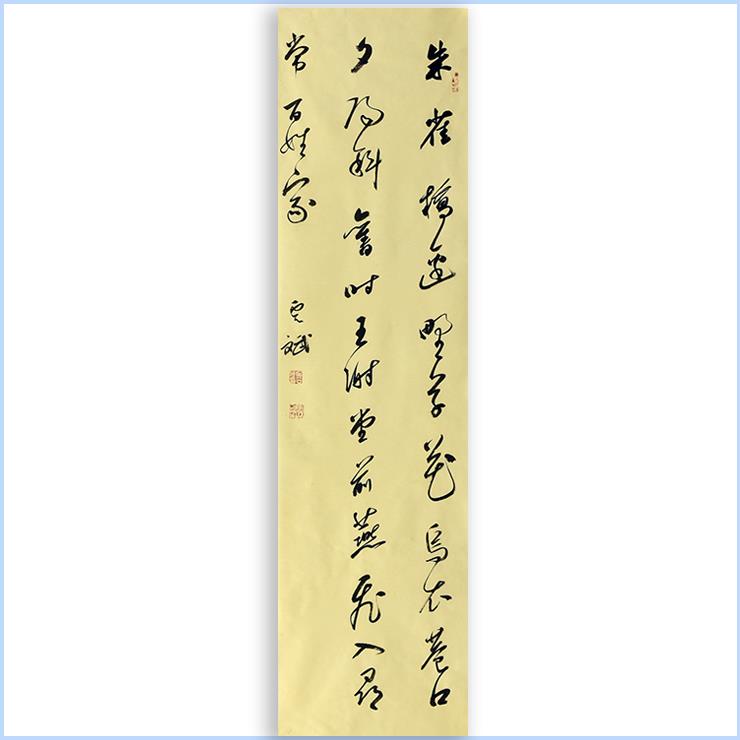 朱雀橋邊野草花烏衣巷口
夕陽斜舊時王謝堂前燕飛入尋
常百姓家
斌